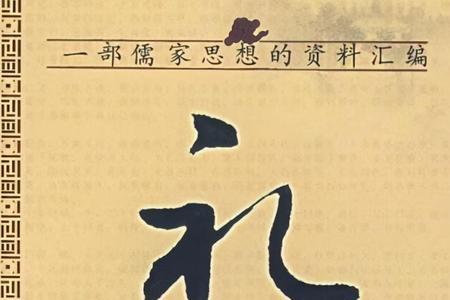 一部儒家思想的资料汇编
礼